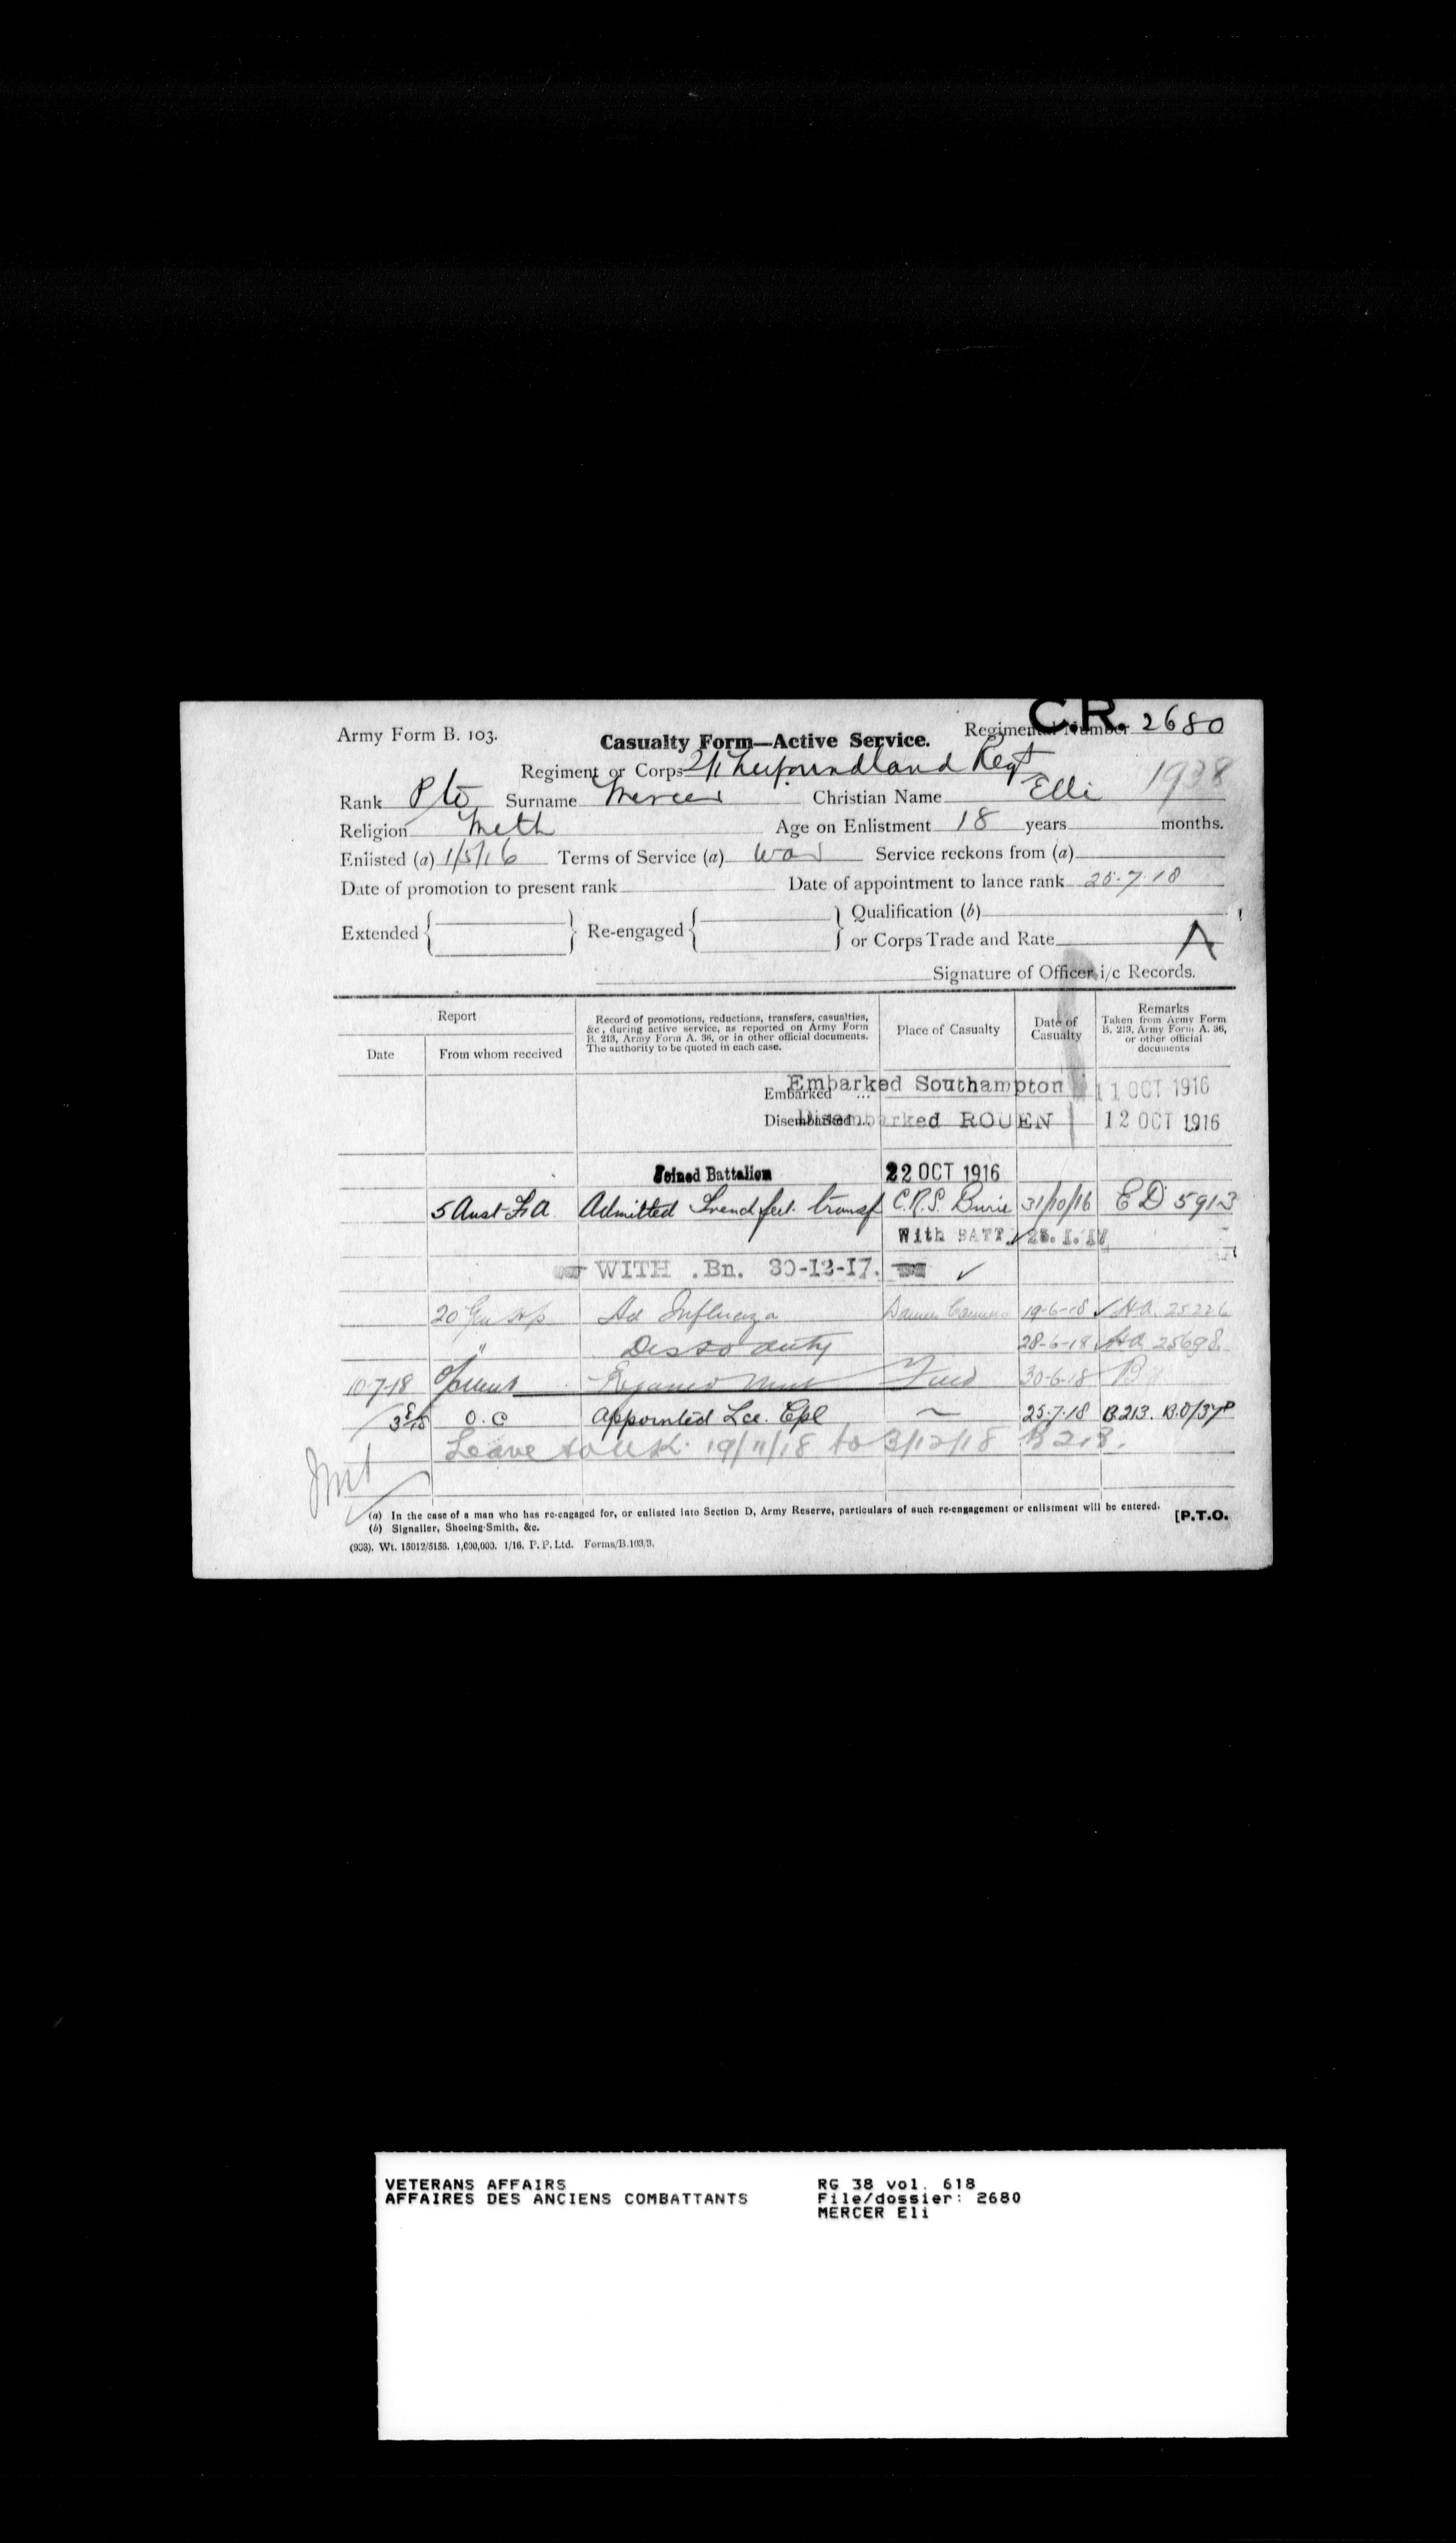 C.R.
Army Form B. 103.
Casualty Form—Active Service.
Regimental Number 2680
Regiment or Corps 2/1 Newfoundland Regt
1938
Rank Pte Surname Mercer Christian Name Elli
Religion Meth Age on Enlistment 18 years months.
Enlisted (a) 1/5/16 Terms of Service (a) War Service reckons from (a)
Date of promotion to present rank Date of appointment to lance rank 25.7.18
Extended { } Re-engaged { } Qualification (b)
or Corps Trade and Rate
A
Signature of Officer i/c Records.
Report
Date
From whom received
Record of promotions, reductions, transfers, casualties, &c, during active service, as reported on Army Form B. 213, Army Form A. 36, or in other official documents. The authority to be quoted in each case.
Place of Casualty
Date of Casualty
Remarks Taken from Army Form B. 213, Army Form A. 36, or other official documents
Embarked ... Embarked Southampton 11 OCT 1916
Disembarked ... Disembarked ROUEN 12 OCT 1916
Joined Battalion 22 OCT 1916
5 Aust F.A. Admitted Trench feet. transf C.R.S. 31/10/16 E D 5913
With BATT.
WITH .Bn. 30-12-17.
20 Gen Hp Ad Influenza Dannes Camiers 19-6-18 HA. 25226
" Dis to duty 28-6-18 HA 25698.
10-7-18 Rejoined Unit Field 30-6-18 B
3/8/18 O.C Appointed Lce. Cpl ~ 25.7.18 B.213. B.O/37P
Leave to U.K. 19/11/18 to 3/12/18 B 213.
(a) In the case of a man who has re-engaged for, or enlisted into Section D, Army Reserve, particulars of such re-engagement or enlistment will be entered.
(b) Signaller, Shoeing-Smith, &c.
[P.T.O.
(903). Wt. 15012/5156. 1,000,000. 1/16. P. P. Ltd. Forms/B.103/3.
VETERANS AFFAIRS RG 38 vol. 618
AFFAIRES DES ANCIENS COMBATTANTS File/dossier: 2680
MERCER Eli